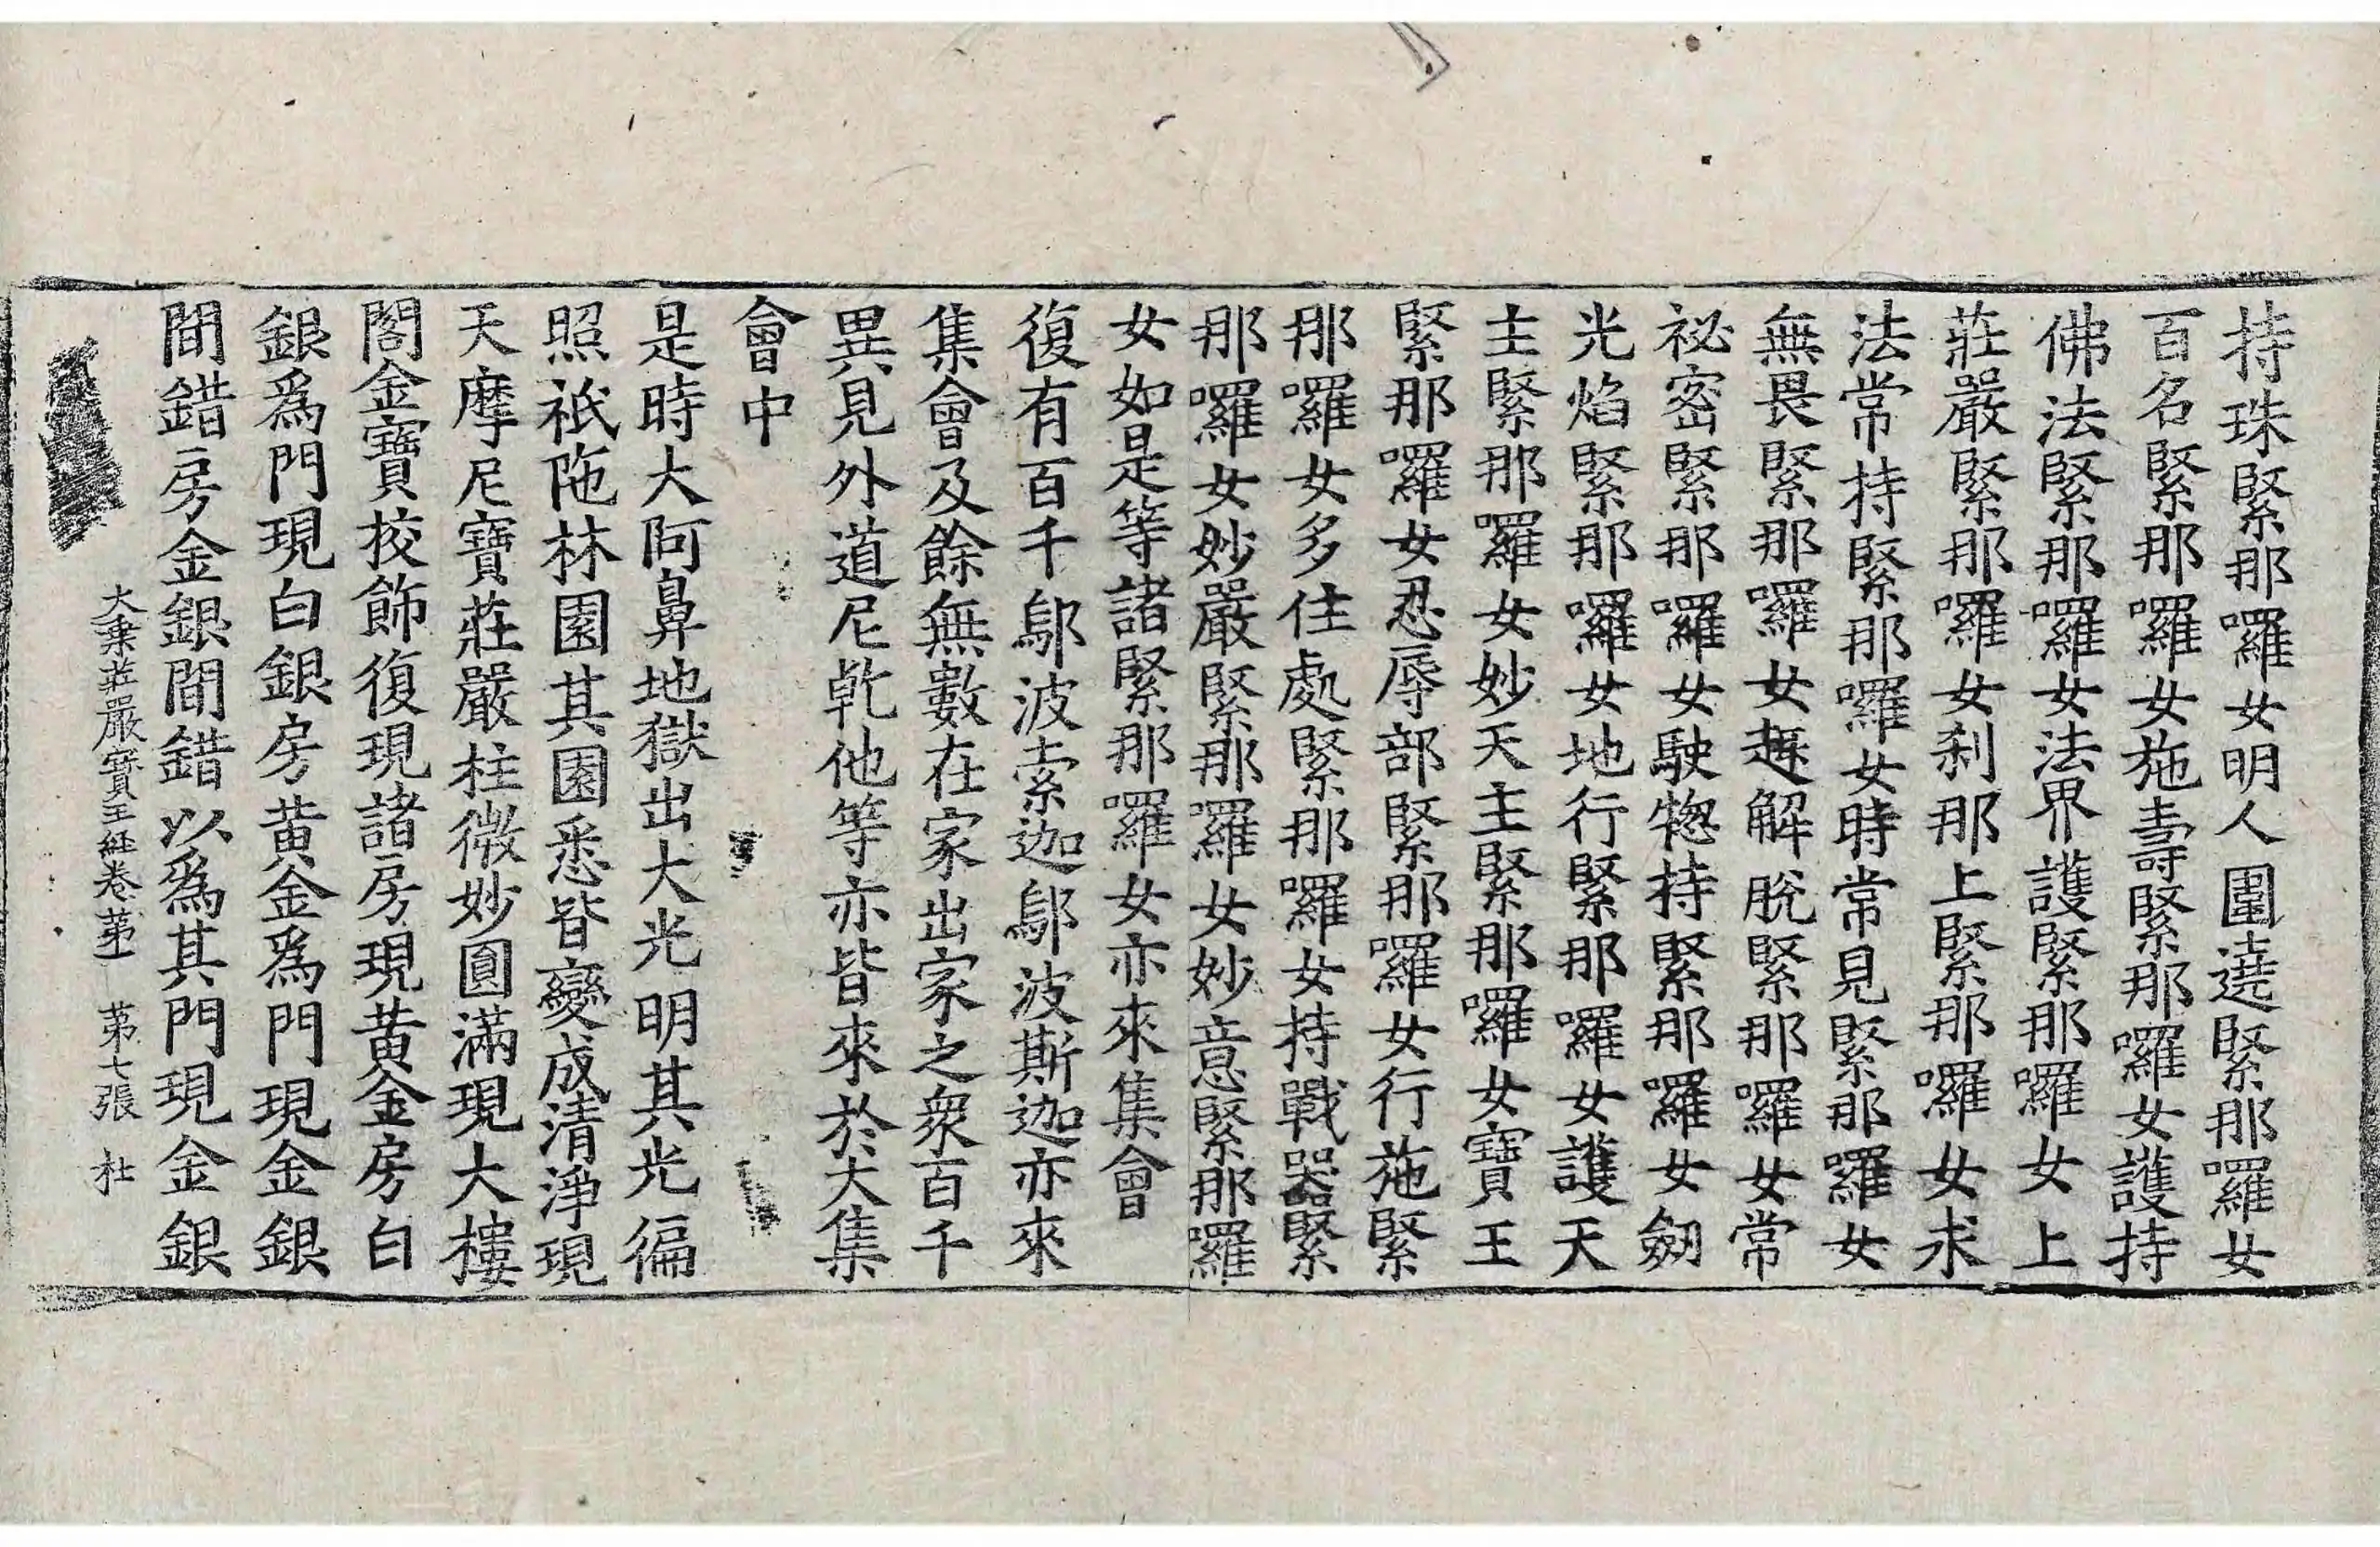 持珠緊那囉女明人圍遶緊那囉女
百名緊那囉女施壽緊那囉女護持
佛法緊那囉女法界護緊那囉女上
莊嚴緊那囉女刹那上緊那囉女求
法常持緊那囉女時常見緊那囉女
無畏緊那囉女趣解脫緊那囉女常
祕密緊那囉女駛惣持緊那囉女劒
光焰緊那囉女地行緊那囉女護天
主緊那囉女妙天主緊那囉女寶王
緊那囉女忍辱部緊那囉女行施緊
那囉女多住處緊那囉女持戰器緊
那囉女妙嚴緊那囉女妙意緊那囉
女如是等諸緊那囉女亦來集會
復有百千鄔波索迦鄔波斯迦亦來
集會及餘無數在家出家之衆百千
異見外道尼乾他等亦皆來於大集
會中
是時大阿鼻地獄出大光明其光徧
照祇陁林園其園悉皆變成清淨現
天摩尼寶莊嚴柱微妙圓滿現大樓
閣金寶校飾復現諸房現黃金房白
銀爲門現白銀房黃金爲門現金銀
間錯房金銀間錯以爲其門現金銀
大乗莊嚴寶王經卷苐一 苐七張 杜